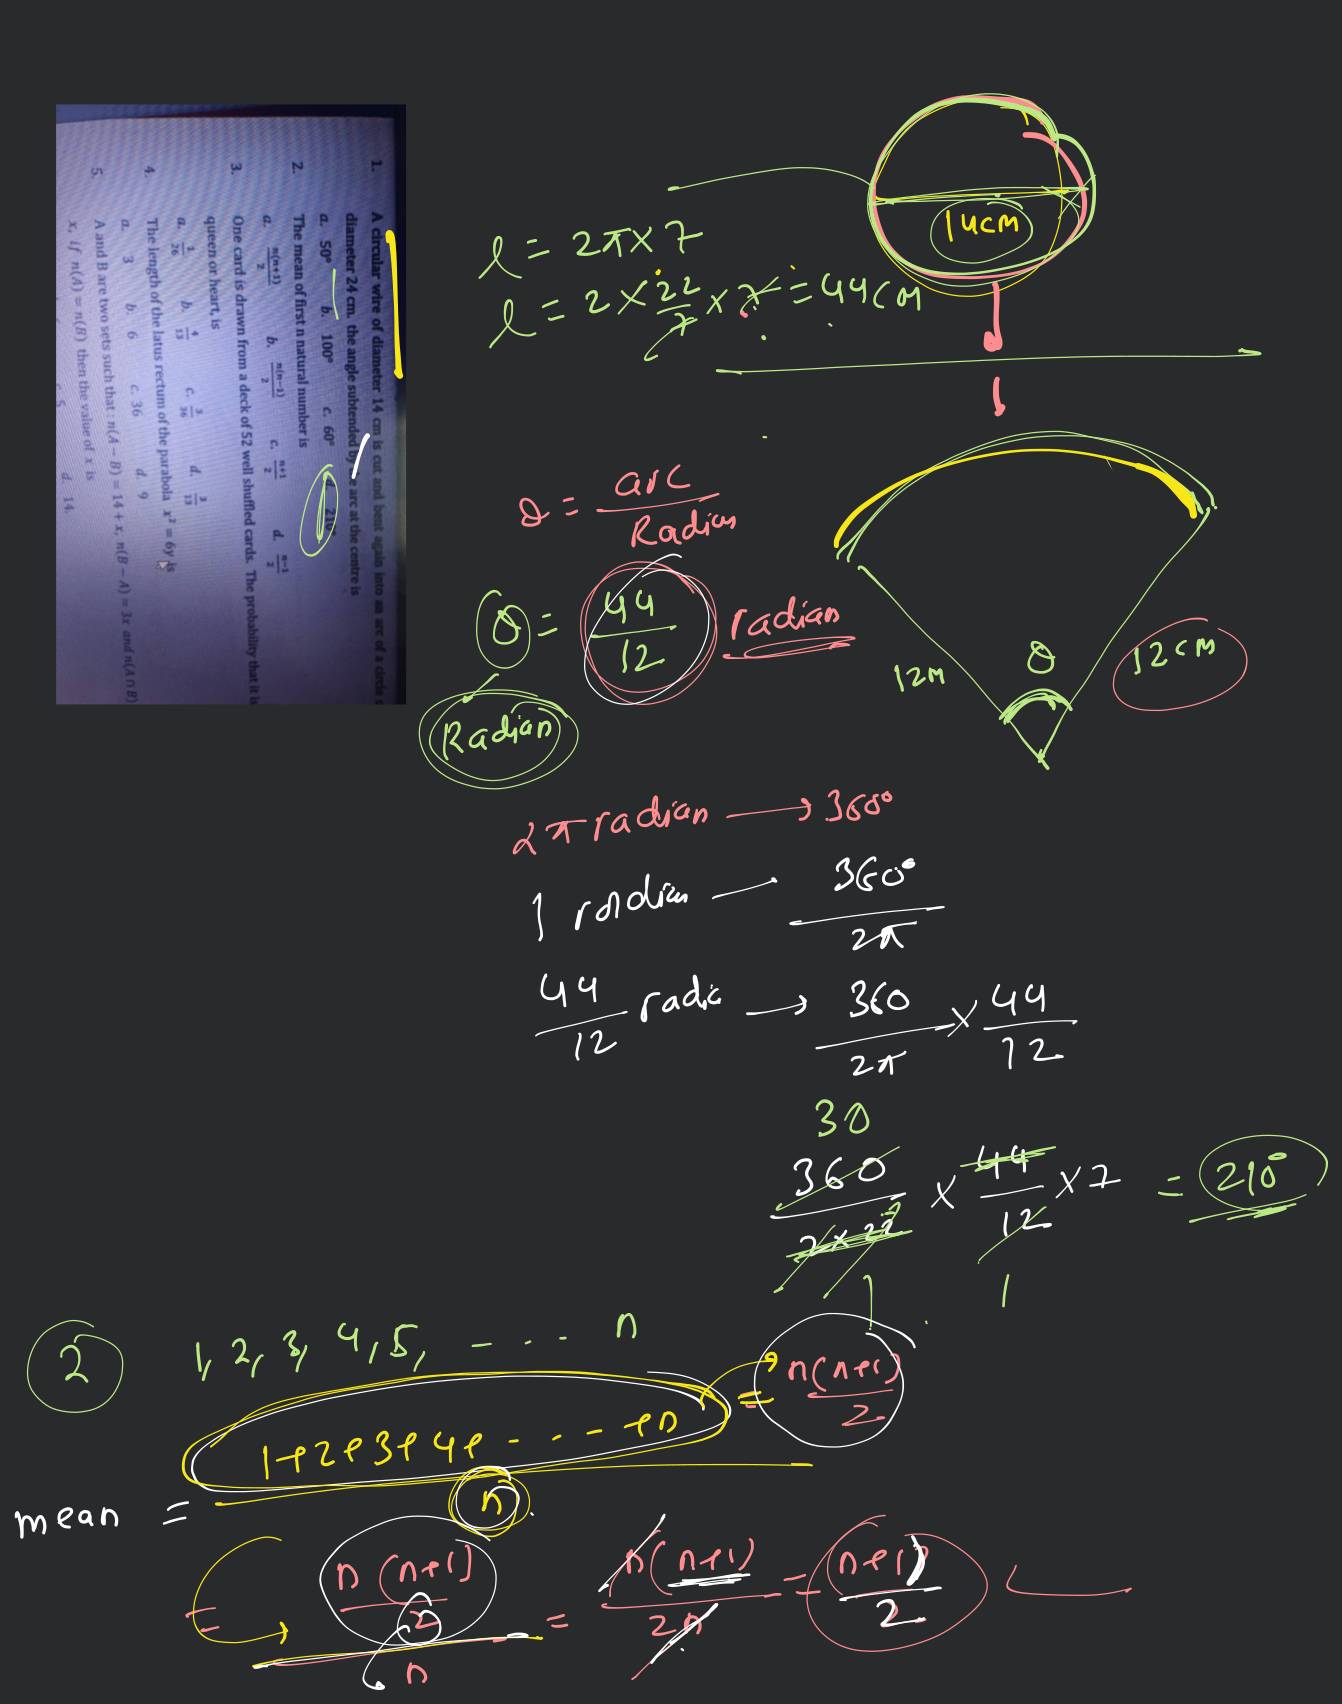 1. A circular wire of diameter 14 cm is cut and bent again into an arc of a circle
diameter 24 cm. the angle subtended by arc at the centre is
a. 50° b. 100° c. 60° d. 210°
2. The mean of first n natural number is
a. n(n+1)/2 b. n(n−1)/2 c. n+1/2 d. n−1/2
3. One card is drawn from a deck of 52 well shuffled cards. The probability that it is
queen or heart, is
a. 1/26 b. 4/13 c. 3/36 d. 3/13
4. The length of the latus rectum of the parabola x² = 6y is
a. 3 b. 6 c. 36 d. 9
5. A and B are two sets such that : n(A − B) = 14 + x, n(B − A) = 3x and n(A ∩ B)
x, if n(A) = n(B) then the value of x is
5 d. 14.
14cm
l = 2π×7
l = 2×22/7×7=44cm
θ = arc/Radius
θ = 44/12 radian
Radian
12m
θ
12cm
2π radian → 360°
1 radian — 360°/2π
44/12 radi → 360/2π × 44/12
30
360/2×22 × 44/12 ×7 = 210°
1 1
2 1, 2, 3, 4, 5, - - - - n
mean = 1+2+3+4+ - - - - +n/n = n(n+1)/2
= n(n+1)/2/n = n(n+1)/2n = (n+1)/2